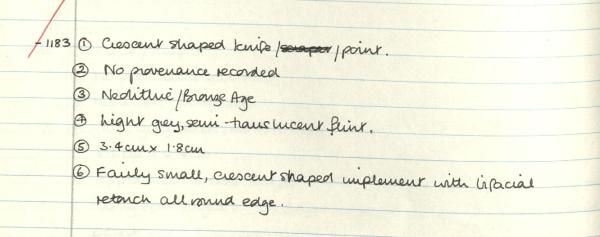 -1183 ① Crescent shaped knife/scraper/point.
② No provenance recorded
③ Neolithic/Bronze Age
④ Light grey, semi-translucent flint.
⑤ 3.4cm x 1.8cm
⑥ Fairly small, crescent shaped implement with bifacial
retouch all round edge.